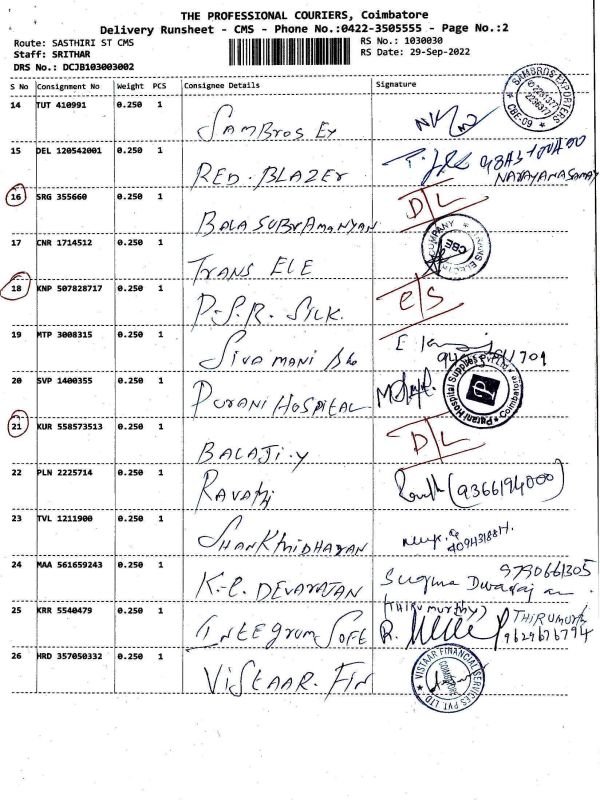 THE PROFESSIONAL COURIERS, Coimbatore
Delivery Runsheet - CMS - Phone No.:0422-3505555 - Page No.:2
Route: SASTHIRI ST CMS
RS No.: 1030030
Staff: SRITHAR
RS Date: 29-Sep-2022
DRS No.: DCJB103003002
S No Consignment No Weight PCS Consignee Details Signature
14 TUT 410991 0.250 1 SAMBROS EX
SAMBROS EXPORTERS CBE-09
15 DEL 120542001 0.250 1 RED. BLAZER
NARAYANASAMY
16 SRG 355660 0.250 1 BALASUBRAMANYAN D/L
17 CNR 1714512 0.250 1 TRANS ELE
COMPANY CBE
18 KNP 507828717 0.250 1 P.S.R. SILK. e/s
19 MTP 3008315 0.250 1 SIVAMANI
20 SVP 1400355 0.250 1 PURANI HOSPITAL
Purani Hospital Supplies Pvt Ltd Coimbatore P
21 KUR 558573513 0.250 1 BALAJI.Y D/L
22 PLN 2225714 0.250 1 RAVATHI (9366194000)
23 TVL 1211900 0.250 1 SHANKMIDHARAN
24 MAA 561659243 0.250 1 K.C. DEVARAJAN 9790661305
(THIRUMURTHY)
25 KRR 5540479 0.250 1 INTEGRUM SOFT R. THIRUMURTHY
9629676794
26 HRD 357050332 0.250 1 VISTAAR. FIN
VISTAAR FINANCIAL SERVICES PVT. LTD COIMBATORE